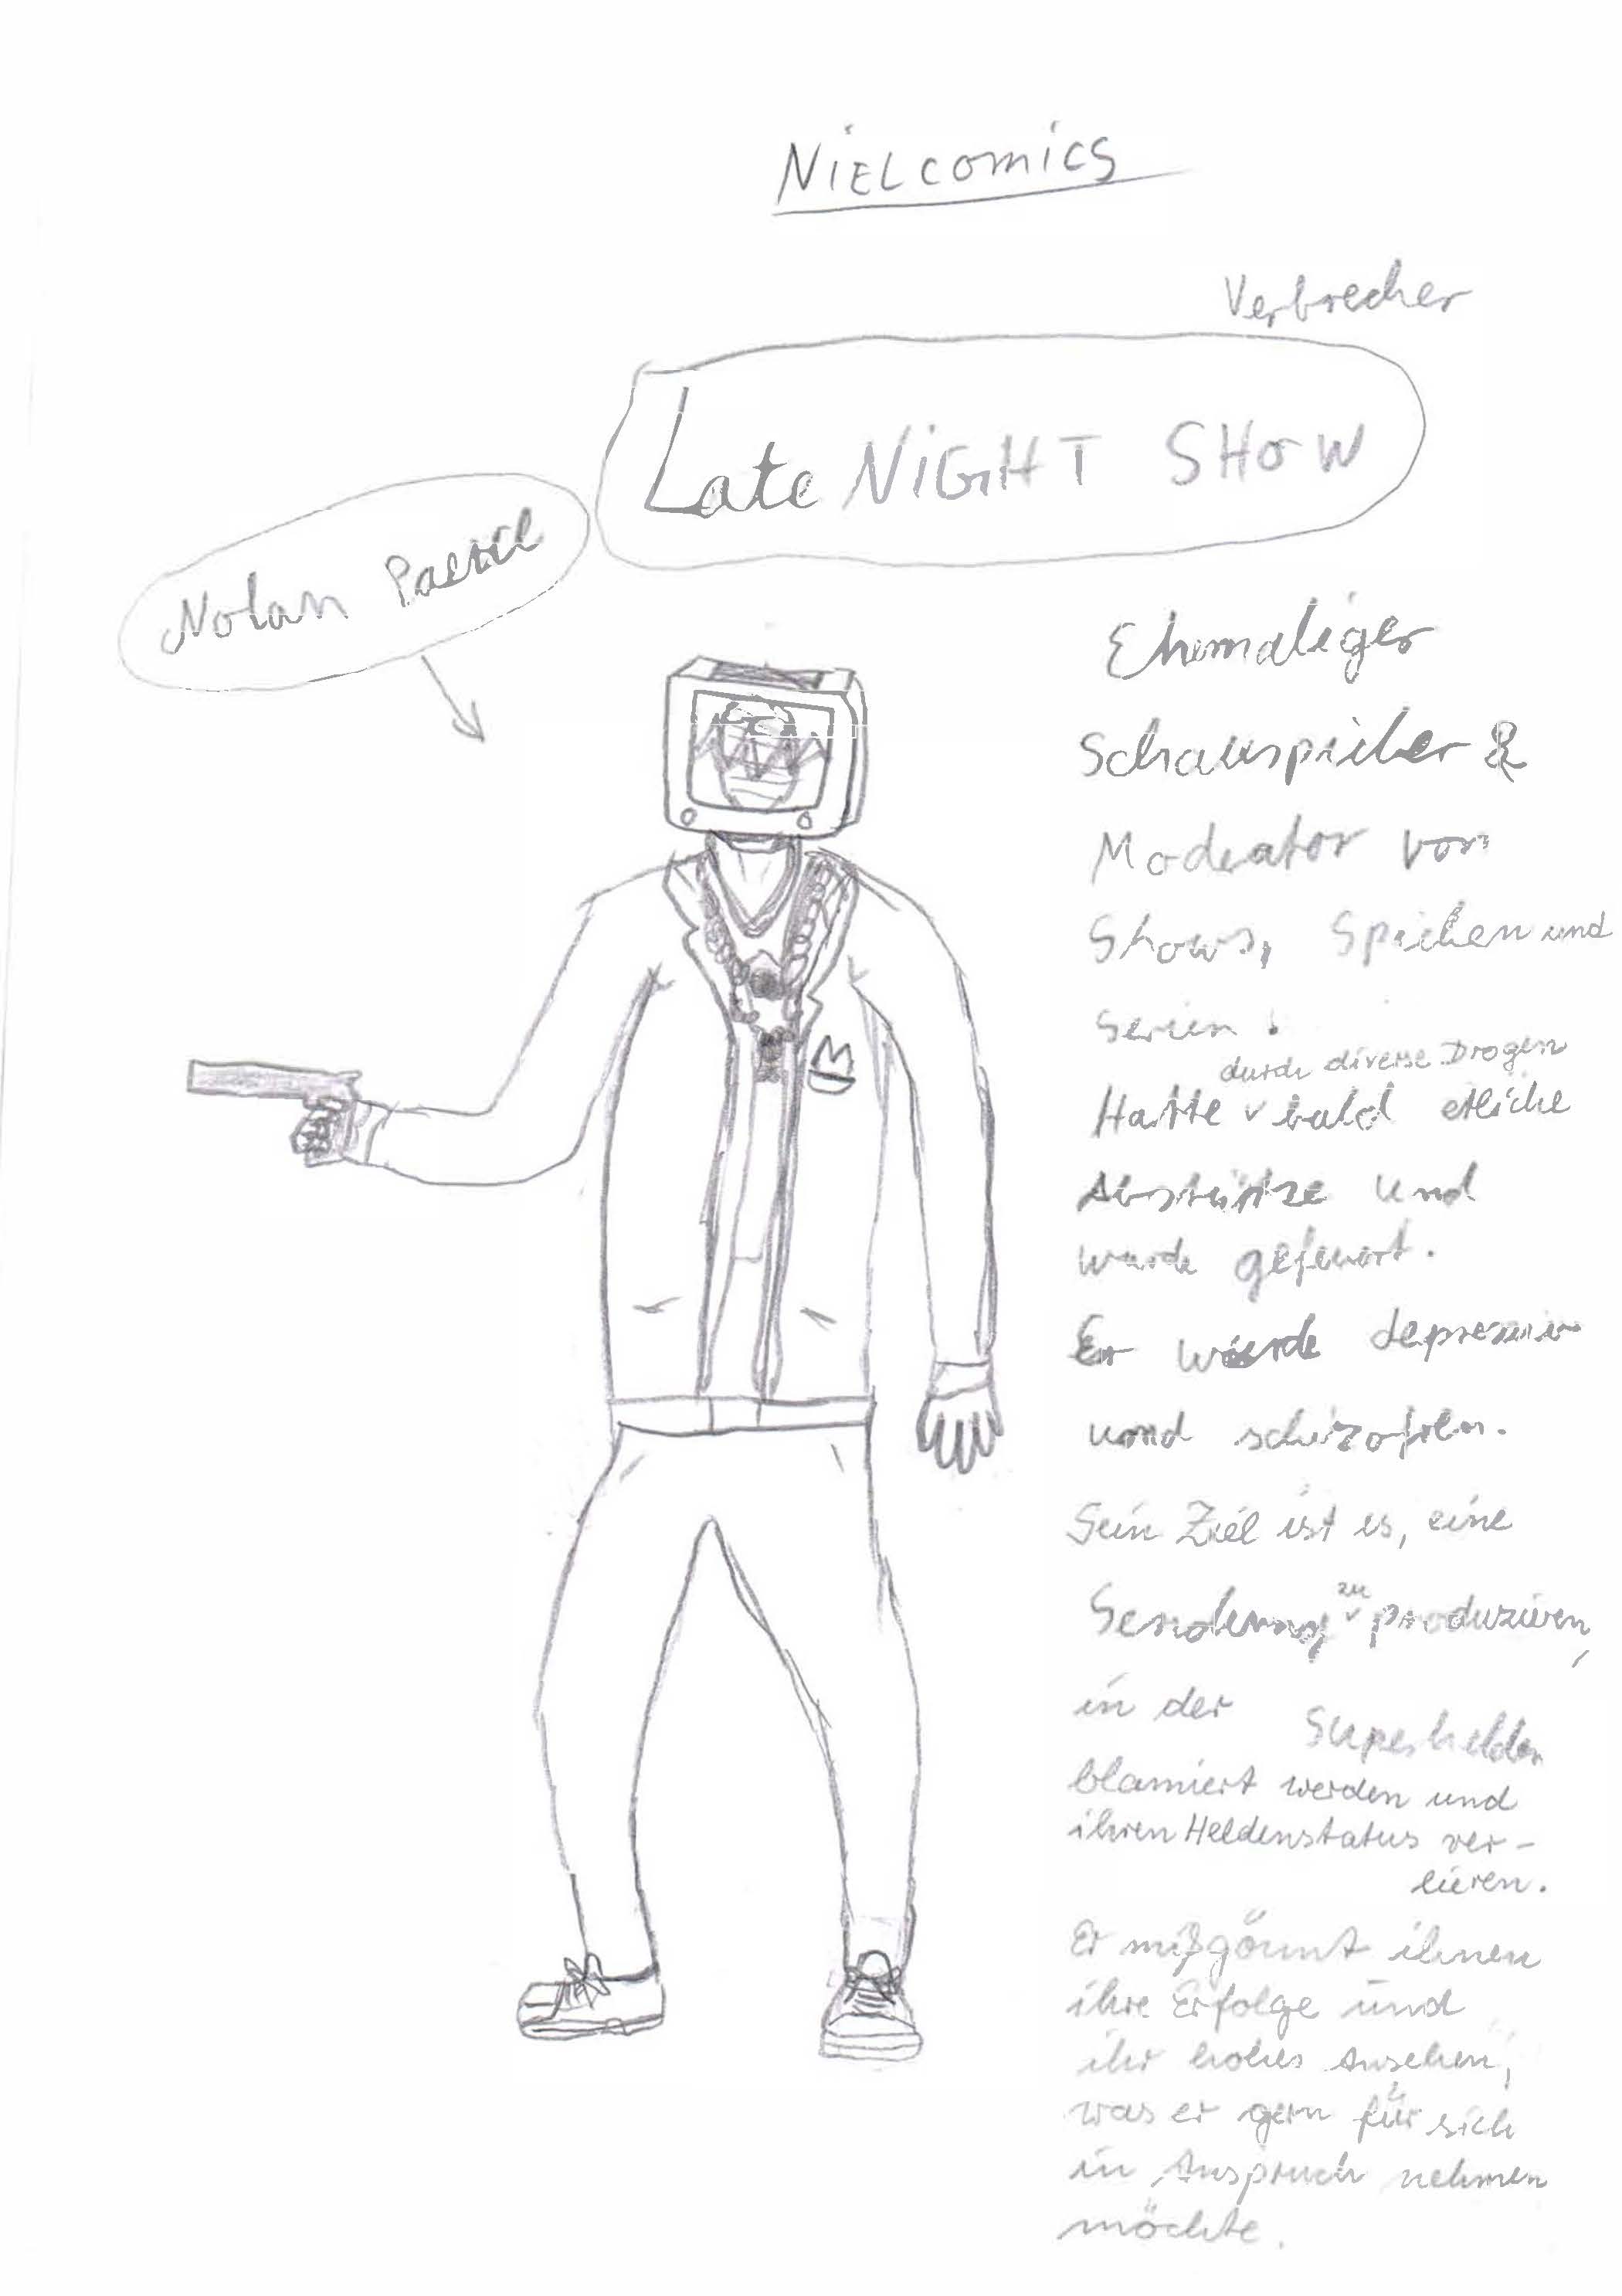 NIELCOMICS
Verbrecher
Late NIGHT SHOW
Nolan
Ehemaliger
Schauspieler &
Moderator von
Shows, Spielen und
Serien.
durch diverse Drogen
Hatte bald etliche
Abstürtze und
wurde gefeuert.
Er wurde depressiv
und schizofren.
Sein Ziel ist es, eine
Sendung zu produzieren,
in der Superhelden
blamiert werden und
ihren Heldenstatus ver-
lieren.
Er mißgönnt ihnen
ihre Erfolge und
ihr hohes Ansehen,
was er gern für sich
in Anspruch nehmen
möchte.